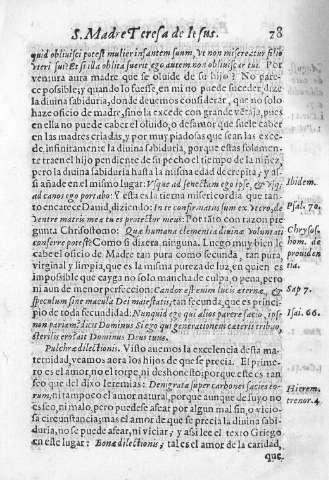 S. Madre Teresa de Iesus. 78
quid obliuisci potest mulier infantem suum, vt non misereatur filio
vteri sui? Et si illa oblita fuerit ego autem non obliuiscar tui. Por
ventura aura madre que se oluide de su hijo? No pare-
ce possible; y quando lo fuesse, en mi no puede suceder, dize
la diuina sabiduria, donde deuemos considerar, que no solo
haze oficio de madre, sino la excede con grande vẽtaja, pues
en ella no puede caber el oluido, o desamor que suele caber
en las madres criadas, y por muy piadosas que sean las exce-
de infinitamente la diuina sabiduria, porque estas solamen-
te traen el hijo pendiente de su pecho el tiempo de la niñez,
pero la diuina sabiduria hasta la misma edad decrepita; y as-
si añade en el mismo lugar: Vsque ad senectam ego ipse, & vsq;
ad canos ego portabo. Y esta es la tierna misericordia que tan-
to encarece Dauid, diziendo: In te confirmatus sum ex vtero, de
ventre matris meæ tu es protector meus: Por tãto con razon pre
gunta Chrisostomo: Quæ humana clementia diuinæ voluntati
conferre potest? Como si dixera, ninguna. Luego muy bien le
cabe el oficio de Madre tan pura como fecunda, tan pura,
virginal y limpia, que es la misma pureza de luz, en quien es
impossible que cayga no solo mancha de culpa, o pena, pero
ni aun de menor perfeccion: Candor est enim lucis æternæ, &
speculum sine macula Dei maiestatis, tan fecunda, que es princi-
pio de toda fecundidad: Nunquid ego qui alios parere facio, ipse
non pariam? dicit Dominus Si ego qui generationem cæteris tribuo,
sterilis ero? ait Dominus Deus tuus.
Pulchræ dilectionis. Visto auemos la excelencia desta ma-
ternidad, veamos aora los hijos de que se precia. El prime-
ro es el amor, no el torpe, ni deshonesto; porque este es tan
feo que del dixo Ieremias: Denigrata super carbones facies eo-
rum, ni tampoco el amor natural, porque aunque de suyo no
es feo, ni malo, pero puedese afear por algun mal sin, o vicio-
sa circunstancia; mas el amor de que se precia la diuina sabi-
duria, no se puede afear, ni viciar, y assi lee el texto Griego
en este lugar: Bonæ dilectionis, tal es el amor de la caridad,
que
Ibidem.
Psal. 70.
Chrysos-
hom. de
prouiden
tia.
Sap 7.
Isai. 66.
Hierem.
trenor. 4